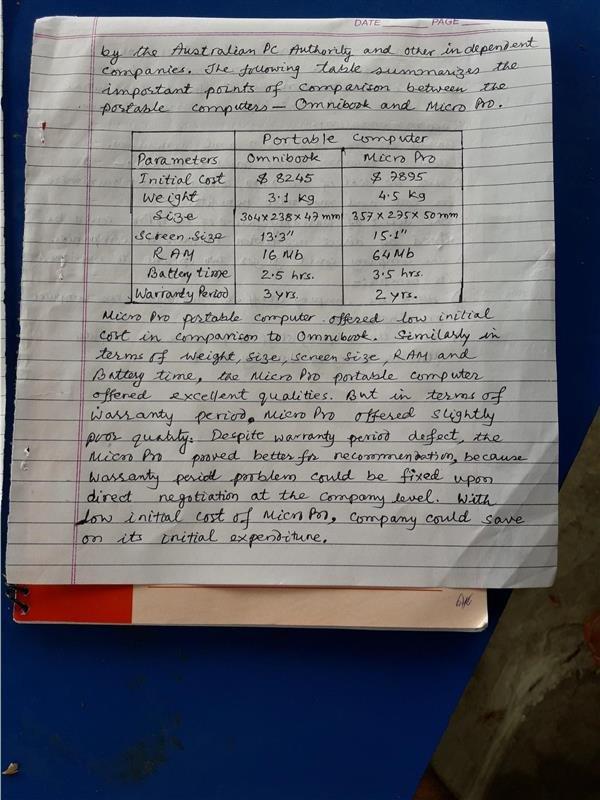 DATE PAGE
by the Australian PC Authority and other independent
companies. The following table summarizes the
important points of comparison between the
portable computers — Omnibook and Micro Pro.
Portable Computer
Parameters Omnibook Micro Pro
Initial Cost $ 8245 $ 7895
Weight 3.1 kg 4.5 kg
Size 304x238x47 mm 357x275x50 mm
Screen Size 13.3" 15.1"
RAM 16 Mb 64 Mb
Battery time 2.5 hrs. 3.5 hrs.
Warranty Period 3 yrs. 2 yrs.
Micro Pro portable computer offered low initial
cost in comparison to Omnibook. Similarly in
terms of weight, size, screen size, RAM and
Battery time, the Micro Pro portable computer
offered excellent qualities. But in terms of
Warranty period, Micro Pro offered slightly
poor quality. Despite warranty period defect, the
Micro Pro proved better for recommendation, because
Warranty period problem could be fixed upon
direct negotiation at the company level. With
low initial cost of Micro Pro, Company could save
on its initial expenditure.